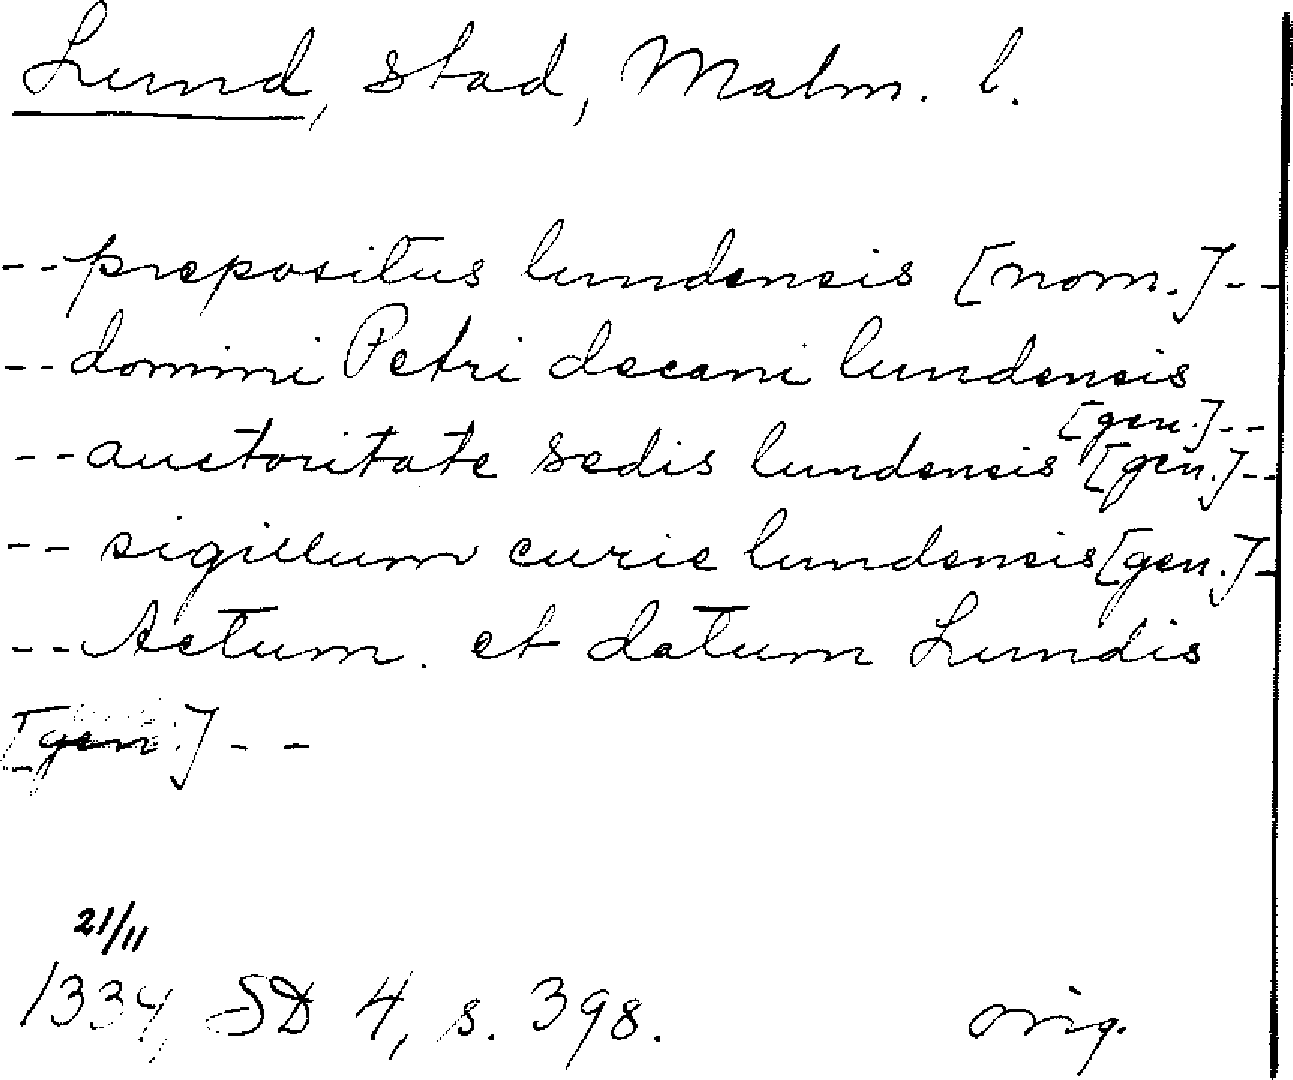 Lund, stad, Malm. l.
--prepositus lundensis [nom.]--
--domini Petri decani lundensis
[gen.]--
--auctoritate sedis lundensis [gen.]--
-- sigillum curie lundensis [gen.]-
--Actum. et datum Lundis
[gen.]--
21/11
1334, SD 4, s. 398. orig.